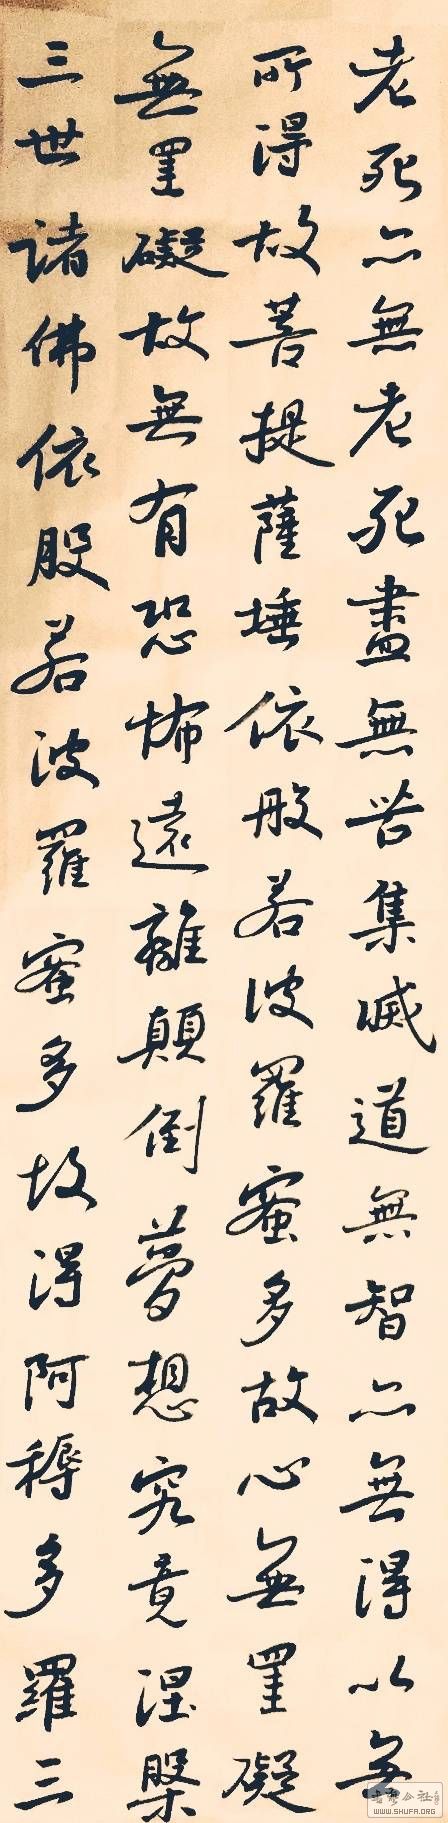 老死亦無老死盡無苦集滅道無智亦無得以無
所得故菩提薩埵依般若波羅蜜多故心無罣礙
無罣礙故無有恐怖遠離顛倒夢想究竟涅槃
三世諸佛依般若波羅蜜多故得阿耨多羅三
WWW.SHUFA.ORG